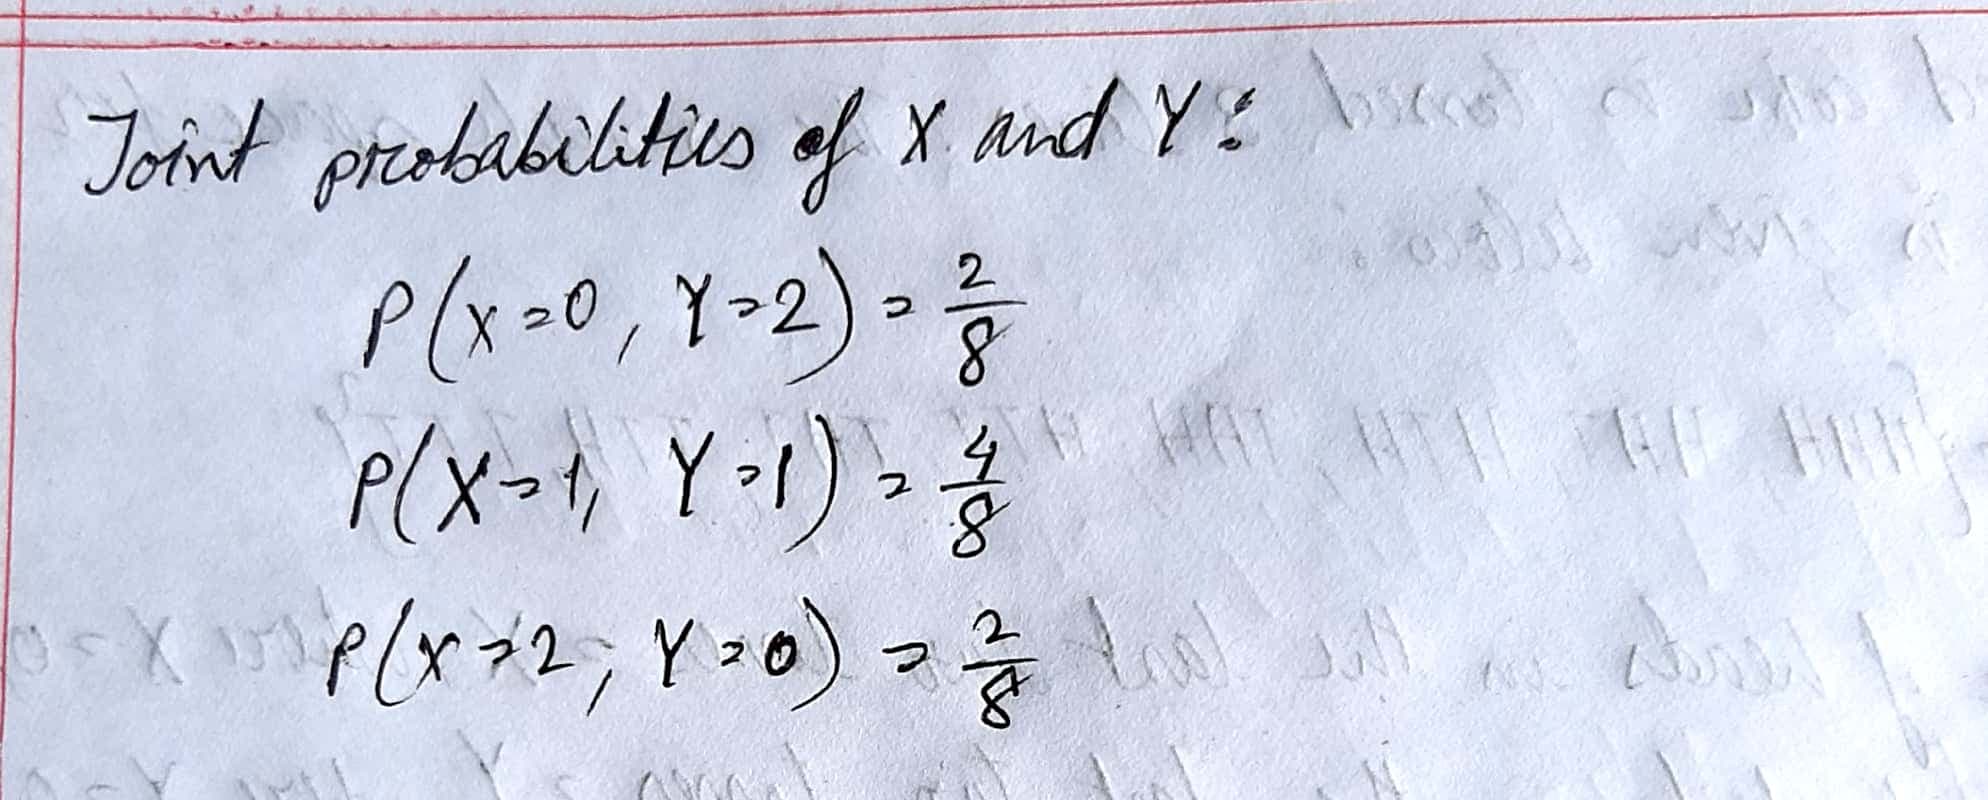 Joint probabilities of X and Y:
P(X=0, Y=2) = 2/8
P(X=1, Y=1) = 4/8
P(X=2, Y=0) = 2/8